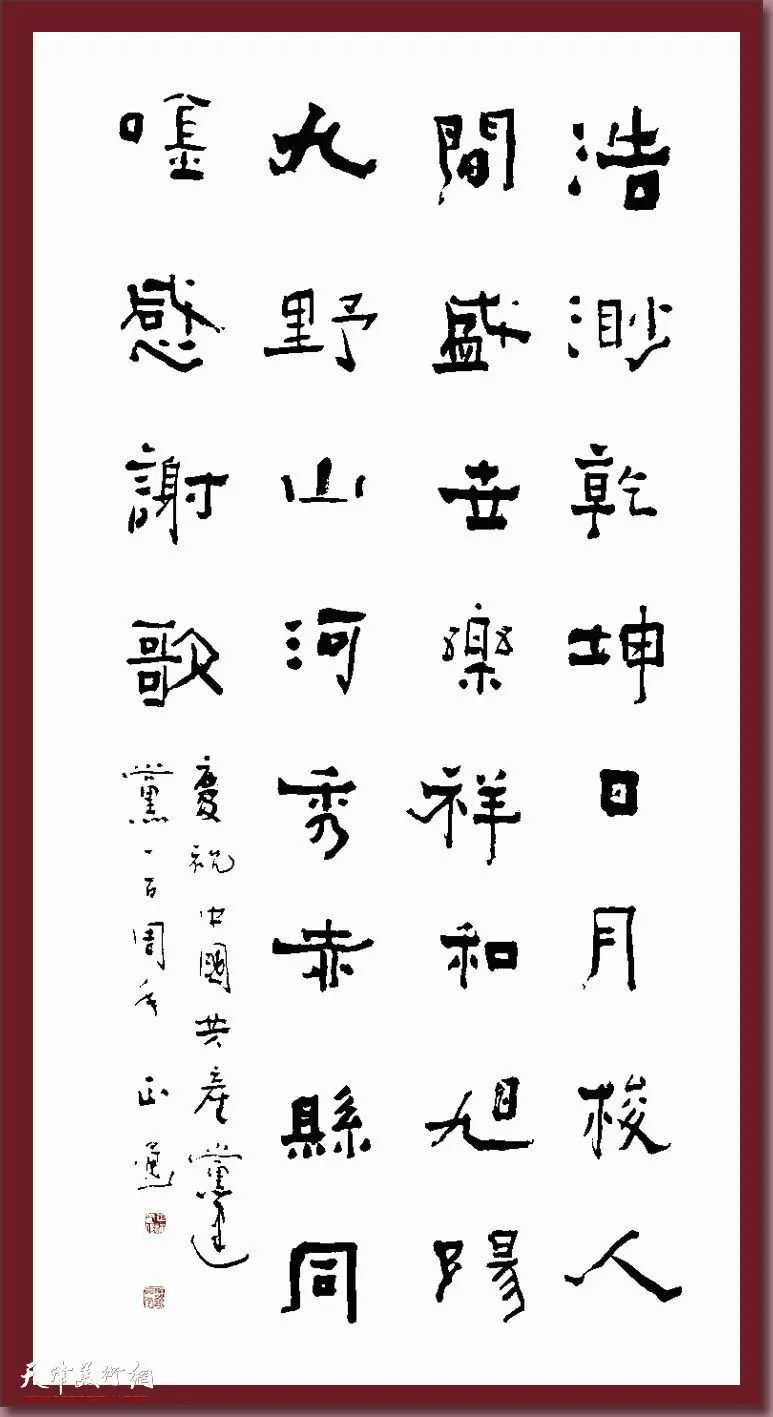 浩渺乾坤日月梭人
間盛世樂祥和旭陽
九野山河秀赤縣同
唫感謝歌
慶祝中國共產黨建
黨一百周年 正
天津美術網